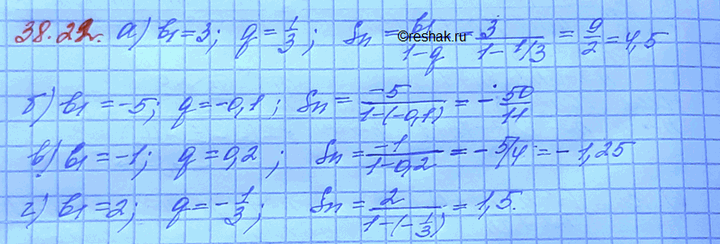 38.22. а) b₁=3; q=1/3; Sn=b₁/(1-q)=3/(1-1/3)=9/2=4,5
©reshak.ru
б) b₁=-5; q=-0,1; Sn=-5/(1-(-0,1))=-50/11
в) b₁=-1; q=0,2; Sn=-1/(1-0,2)=-5/4=-1,25
г) b₁=2; q=-1/3; Sn=2/(1-(-1/3))=1,5.